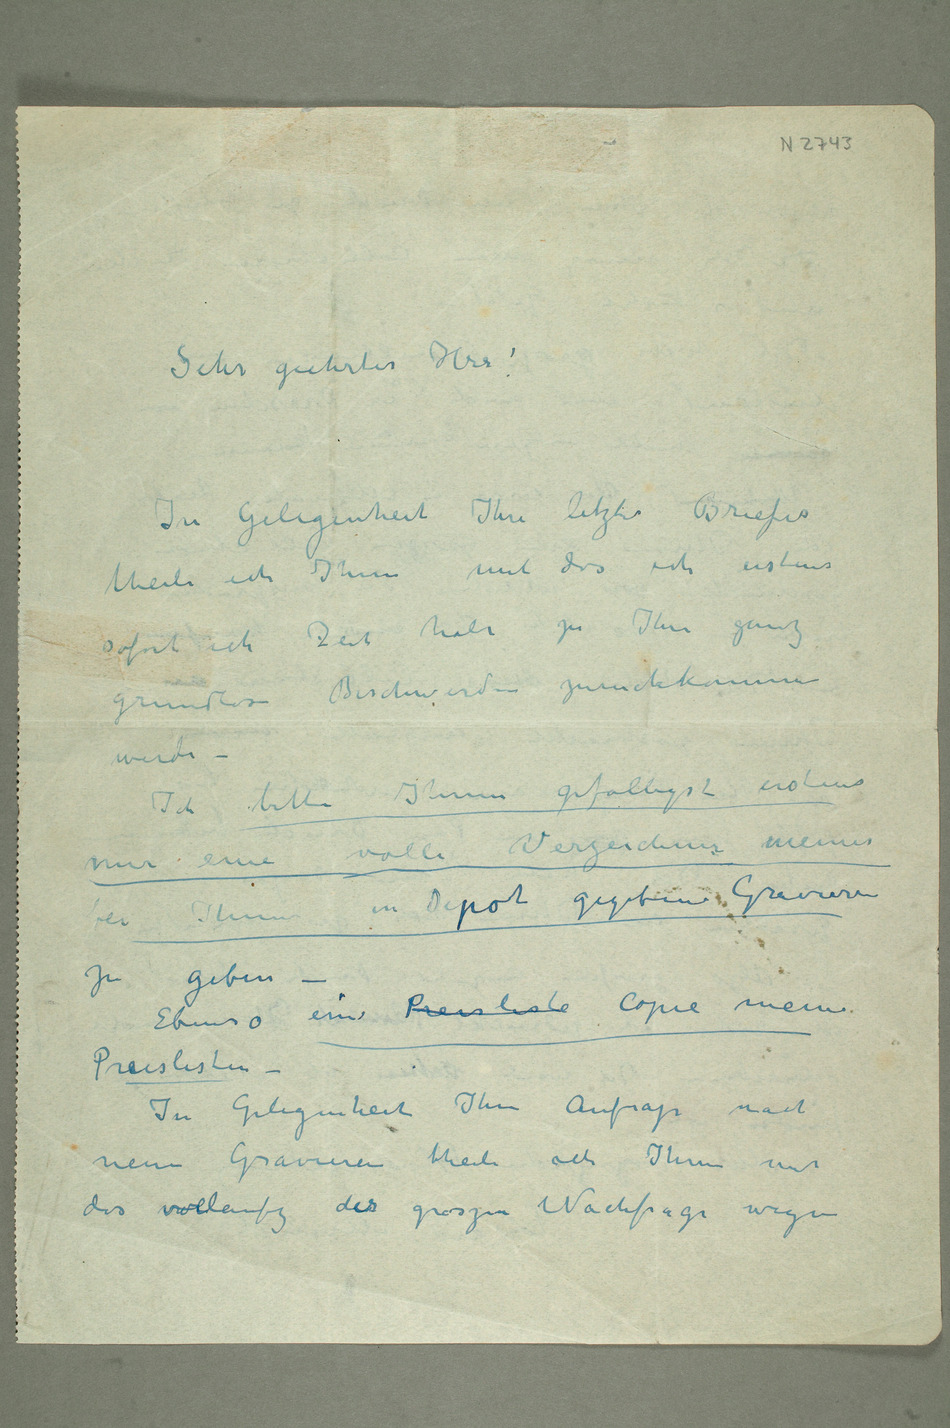 N 2743
Sehr geehrter Herr!
In Gelegenheit Ihre letzte Briefes
theile ich Ihnen mit das ich erstens
sofort ich Zeit habe zu Ihre ganz
grundlose Beschwerden zurückkommen
werde –
Ich bitte Ihnen gefälligst erstens
mir eine volle Verzeichnis meiner
bei Ihnen in Depot gegebene Gravuren
zu geben –
Ebenso eine Preisliste Copie meine
Preislisten –
In Gelegenheit Ihre Anfrage nach
neue Gravuren theile ich Ihnen mit
das vorläufig der groszen Nachfrage wegen